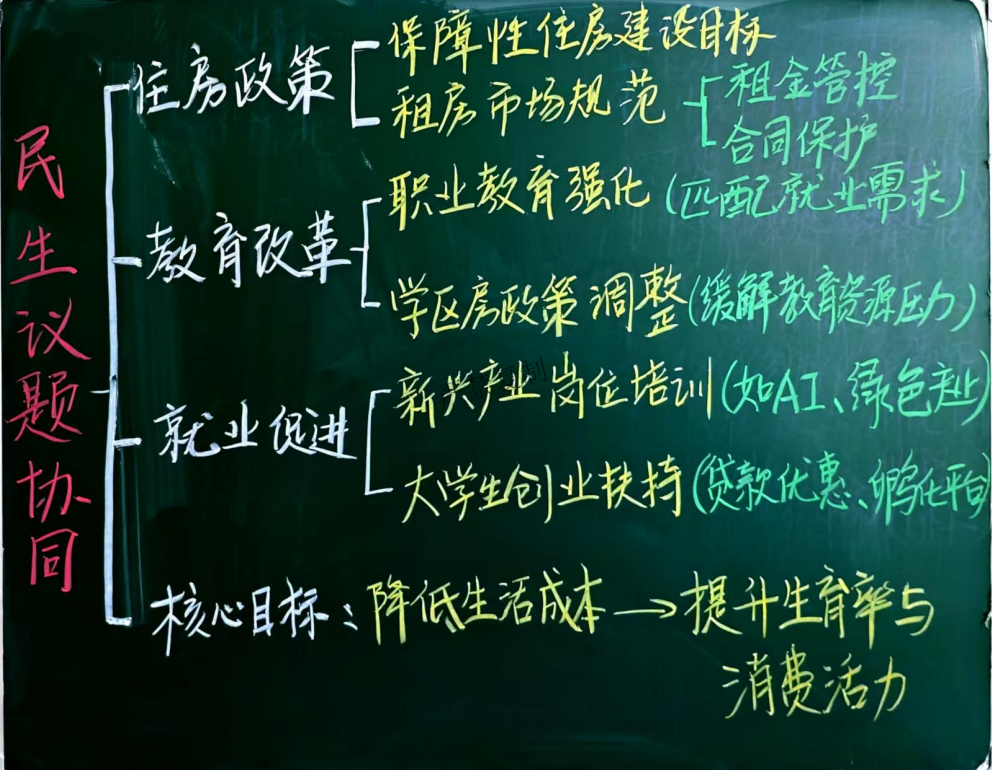 民生议题协同
住房政策
保障性住房建设目标
租房市场规范
租金管控
合同保护
教育改革
职业教育强化(匹配就业需求)
学区房政策调整(缓解教育资源压力)
就业促进
新兴产业岗位培训(如AI、绿色产业)
大学生创业扶持(贷款优惠、孵化平台)
核心目标:降低生活成本→提升生育率与
消费活力